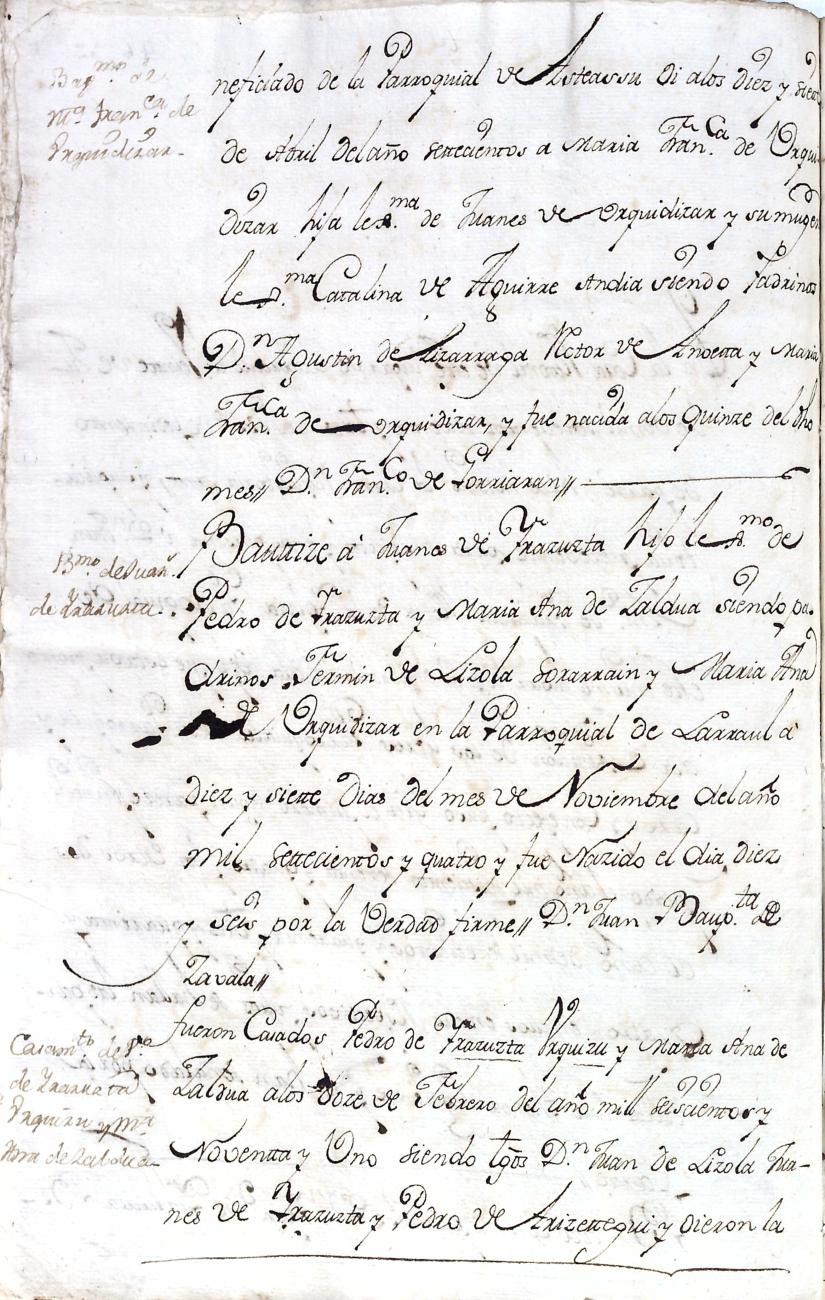 Bap.mo de
M.a Fran.ca de
Vrquidizar.
neficiado de la Parroquial de Asteassu Di alos diez y siete
de Abril del año settecientos a Maria Fran.ca de Vrqui
dizar hija lex.ma de Juanes de Vrquidizar y su muger
lex.ma Catalina de Aguirre Andia siendo Padrinos
D.n Agustin de Lizarraga Rector de Anoetta y Maria
Fran.ca de Vrquidizar, y fue nacida alos quinze del dho
mes// D.n Fran.co de Torriaran//
B.mo de Juan.s
de Yrazuzta.
Bautize a Juanes de Yrazuzta hijo lex.mo de
Pedro de Yrazuzta y Maria Ana de Zaldua siendo pa-
drinos Fermin de Lizola Sorarrain y Maria Ana
de Vrquidizar en la Parroquial de Larraul a
diez y siette Dias del mes de Noviembre del año
mil settecientos y quatro y fue Nazido el dia diez
y seis por la Verdad firme// D.n Juan Baup.ta de
Zavala//
Casam.to de P.o
de Yrazuzta
Vrquizu y M.a
Ana de Zaldua
fueron Casados Pedro de Yrazuzta Vrquizu y Maria Ana de
Zaldua alos Doze de Febrero del año mill seiscientos y
Noventta y Uno siendo tgos D.n Juan de Lizola Jua-
nes de Yrazuzta y Pedro de Arizettegui y Dieron la